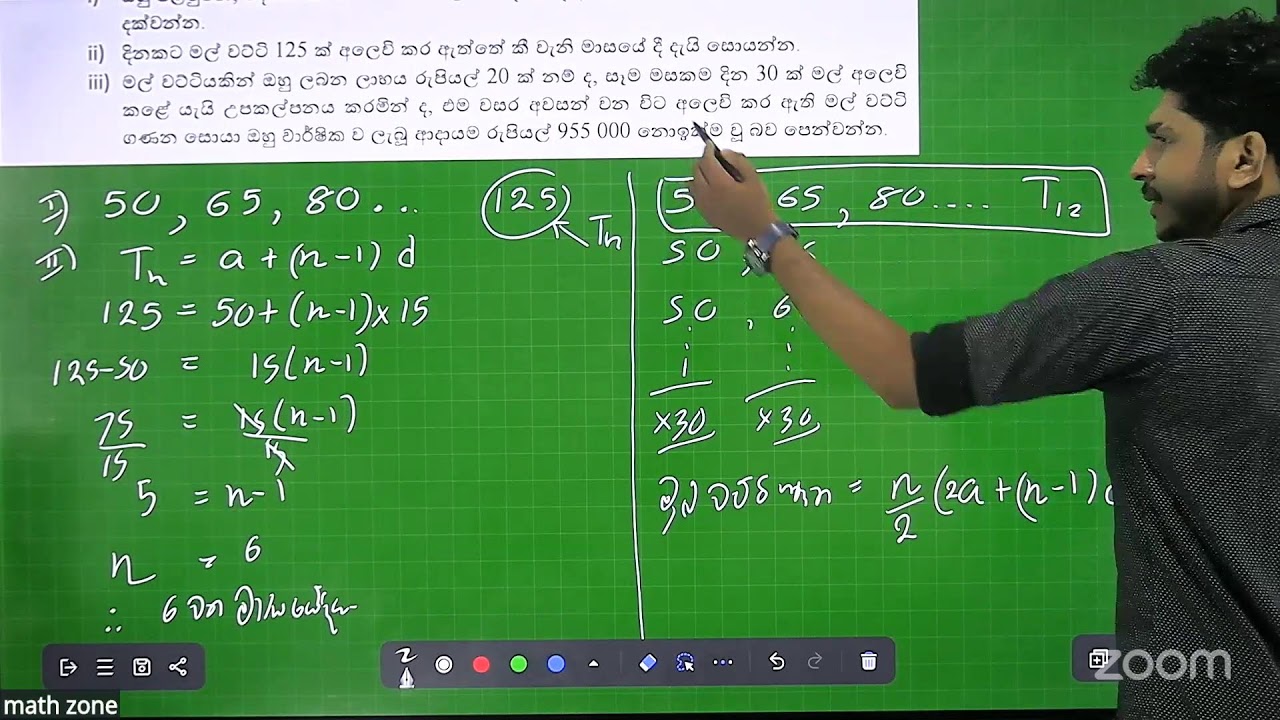 දක්වන්න.
ii) දිනකට මල් වට්ටි 125 ක් අලෙවි කර ඇත්තේ කී වැනි මාසයේ දී දැයි සොයන්න.
iii) මල් වට්ටියකින් ඔහු ලබන ලාභය රුපියල් 20 ක් නම් ද, සෑම මසකම දින 30 ක් මල් අලෙවි
කළේ යැයි උපකල්පනය කරමින් ද, එම වසර අවසන් වන විට අලෙවි කර ඇති මල් වට්ටි
ගණන සොයා ඔහු වාර්ෂික ව ලැබූ ආදායම රුපියල් 955 000 නොඉක්ම වූ බව පෙන්වන්න.
I) 50 , 65 , 80 ... 125 Tn
II) Tn = a + (n-1) d
125 = 50 + (n-1) x 15
125-50 = 15(n-1)
75/15 = 15(n-1)/15
5 = n-1
n = 6
∴ 6 වන මාසයේදීය
65 , 80 .... T12
50 ,
50 , 6
x30 x30
= n/2 (2a + (n-1)
zoom
math zone